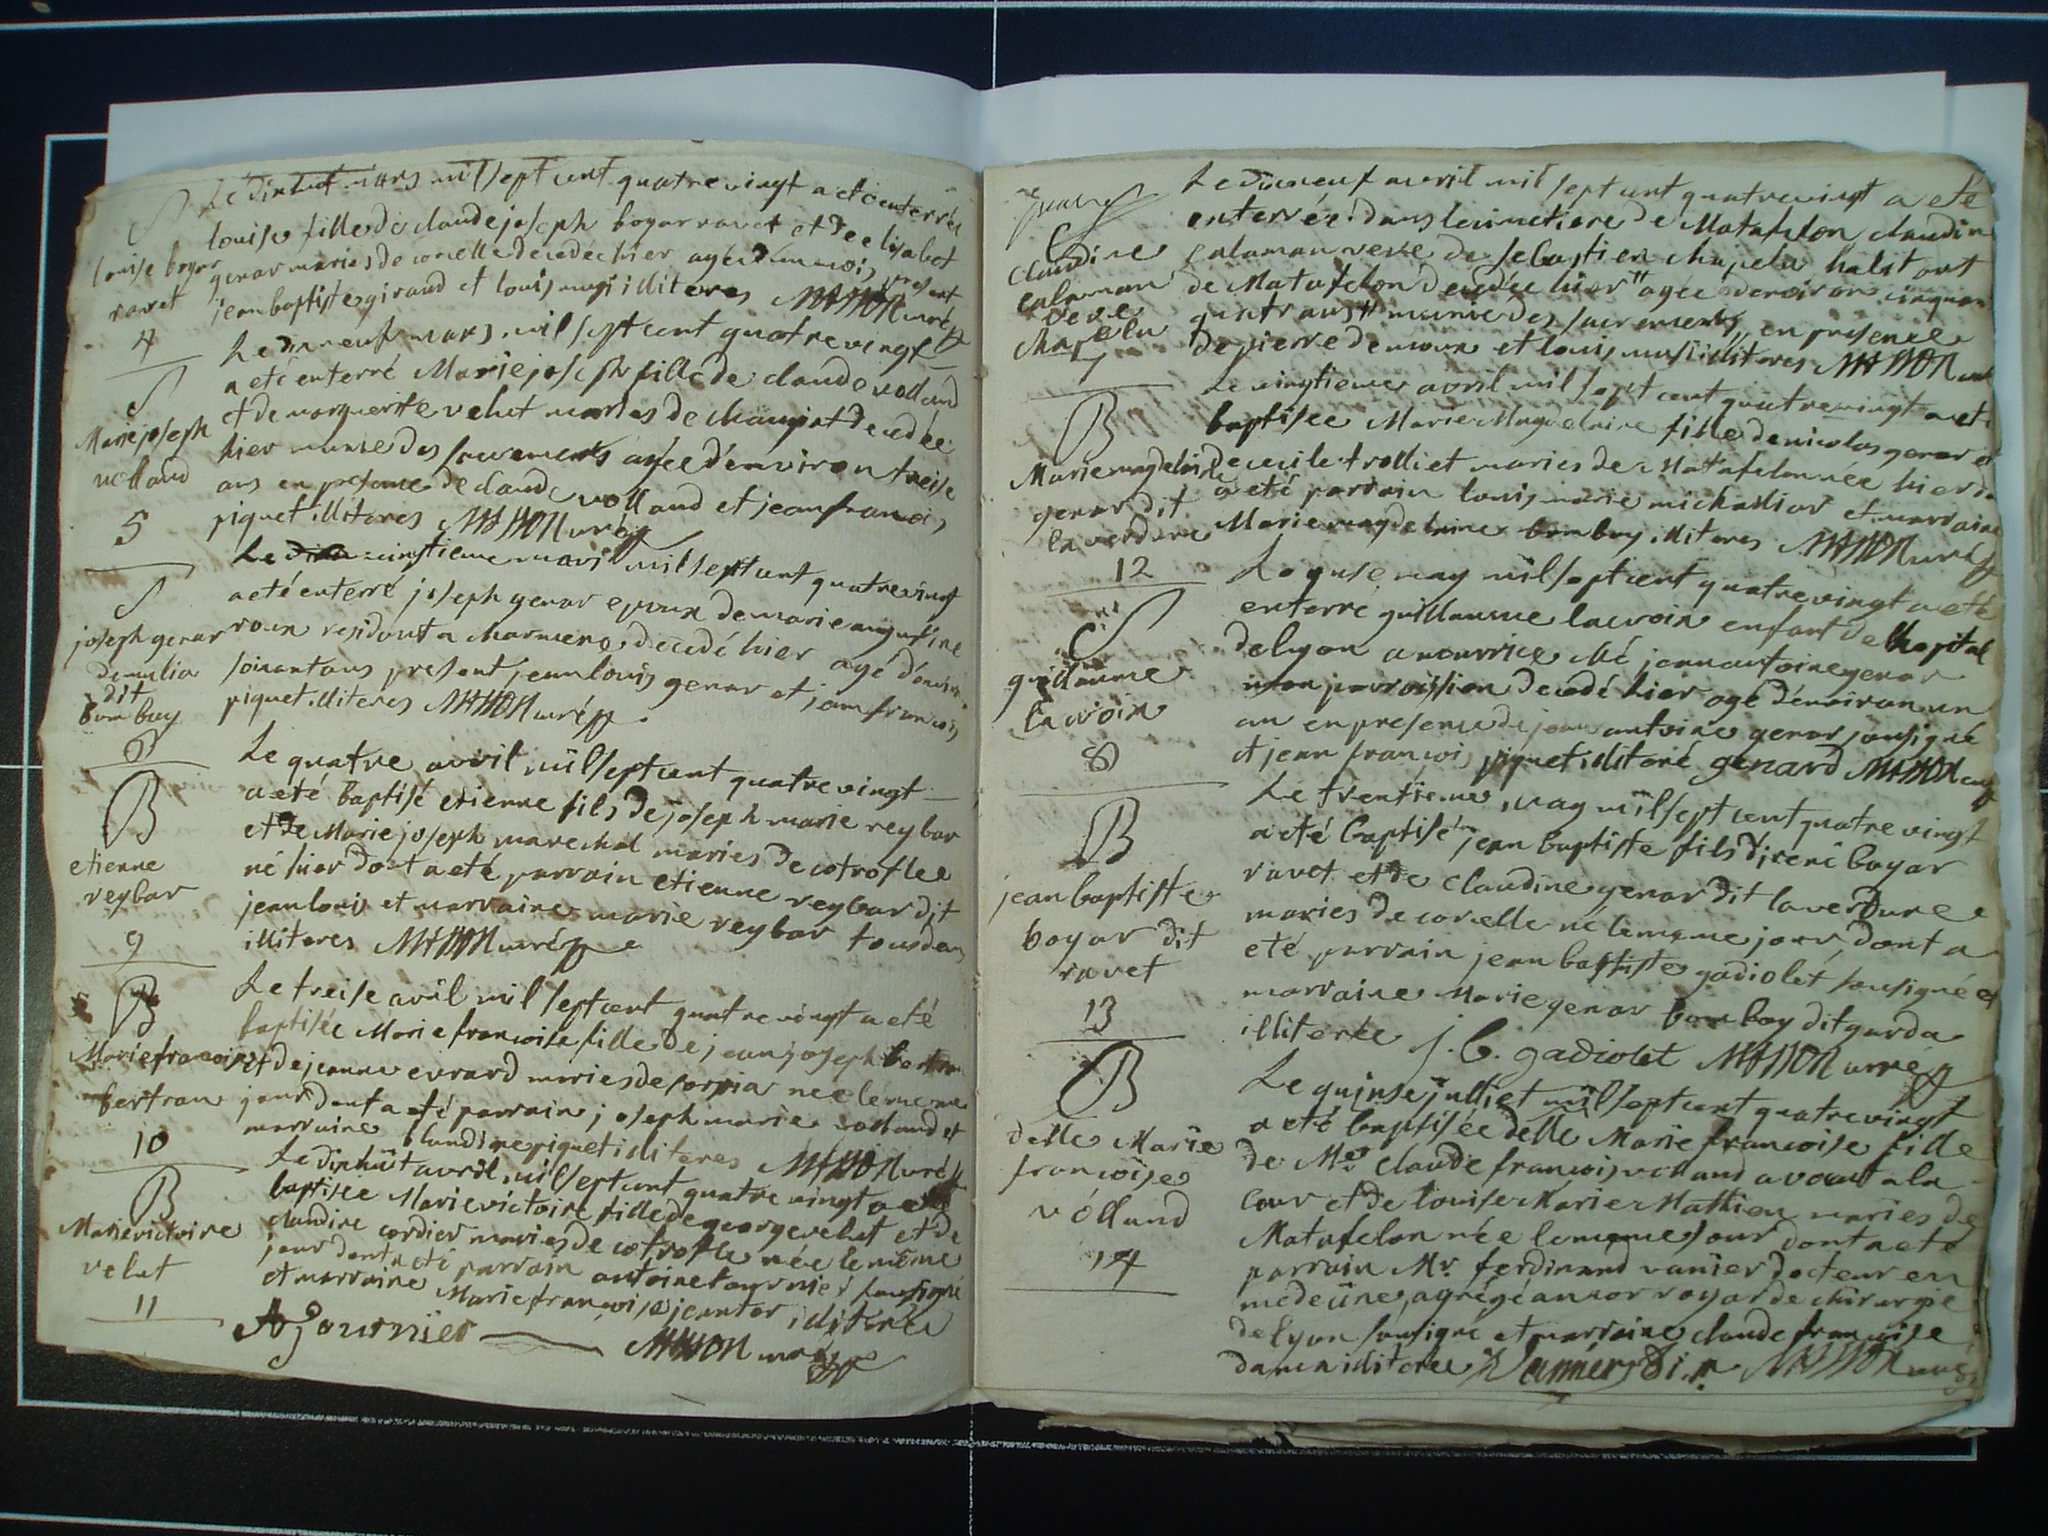 S
louise bogar
ravet
4
Le dixhuit mars mil sept cent quatre vingt a eté enterrée
louise fille de claude joseph bogar ravet et de elisabet
genar maries de corcelle decedée hier agée mois present
jean baptiste giraud et louis illiteres MASSON curé
S
Marie joseph
volland
5
Le dixneuf mars mil sept cent quatre vingt
a eté enterré Marie joseph fille de claude volland
et de marguerite velut maries de decedée
hier munie des sacrements agée d'environ treise
ans en presence de claude volland et jean francois
piquet illiteres MASSON curé
S
joseph genar
dit
bombuy
6
Le vingtieme mars mil sept cent quatre vingt
a eté enterré joseph genar epoux de marie augustine
roux residant a decedé hier agé d'environ
soixant ans present jean louis genar et jean francois
piquet illiteres MASSON curé
B
etienne
reybar
9
Le quatre avril mil sept cent quatre vingt
a eté baptisé etienne fils de joseph marie reybar
et de Marie joseph marechal maries de cotroflee
né hier dont a eté parrain etienne reybar dit
jean louis et marraine marie reybar tous deux
illiteres MASSON curé
B
Marie francoise
bertran
10
Le treise avril mil sept cent quatre vingt a eté
baptisée Marie francoise fille de jean joseph bertran
et de jeanne evrard maries de née le meme
jour dont a eté parrain joseph marie volland et
marraine claudine piquet iliteres MASSON curé
B
Marie victoire
velut
11
Le diphuit avril mil sept cent quatre vingt a eté
baptisée Marie victoire fille de george velut et de
claudine cordier maries de cotrofle née le même
jour dont a eté parrain antoine fournier sousigné
et marraine Marie francoise jeantor iliterée
A fournier MASSON curé
S
claudine
calaman
veve
chapelu
7
Le dixneuf avril mil sept cent quatre vingt a eté
enterrée dans le cimetiere de Matafelon claudine
calaman veve de sebastien chapelu habitant
de Matafelon decedée hier agée d'environ cinquante
quatr ans munie des sacrements en presence
de pierre et louis illiteres MASSON curé
B
Marie magdelaine
genar dit
laverdure
12
Le vingtieme avril mil sept cent quatre vingt a eté
baptisée Marie Magdelaine fille de nicolas genar et
de cecile trolliet maries de Matafelon née hier
a eté parrain louis marie michallier et marraine
Marie magdelaine bombuy illiteres MASSON curé
S
guillaume
lacroix
8
Le onse may mil sept cent quatre vingt a eté
enterré guillaume lacroix enfant de lhopital
de lyon a nourrice ché jean antoine genar
mon parroissien decedé hier agé d'environ un
an en presence de jean antoine genar sousigné
et jean francois piquet iliteré genard MASSON curé
B
jean baptiste
bogar dit
ravet
13
Le trentieme may mil sept cent quatre vingt
a eté baptisé jean baptiste fils direné bogar
ravet et de claudine genar dit laverdure
maries de corcelle né le meme jour, dont a
eté parrain jean baptiste gadiolet sousigné et
marraine Marie genar bomboy dit garda
illiterée J. b. gadiolet MASSON curé
B
delle Marie
francoise
vólland
14
Le quinse julliet mil sept cent quatre vingt
a eté baptisée delle Marie francoise fille
de Mr claude francois volland avocat a la
cour et de louise Marie Mathieu maries de
Matafelon née le meme jour dont a eté
parrain Mr. ferdinand vanier docteur en
medecine, agrégé au cor royar de chirurgie
de lyon sousigné et marraine claude francoise
iliterée MASSON curé